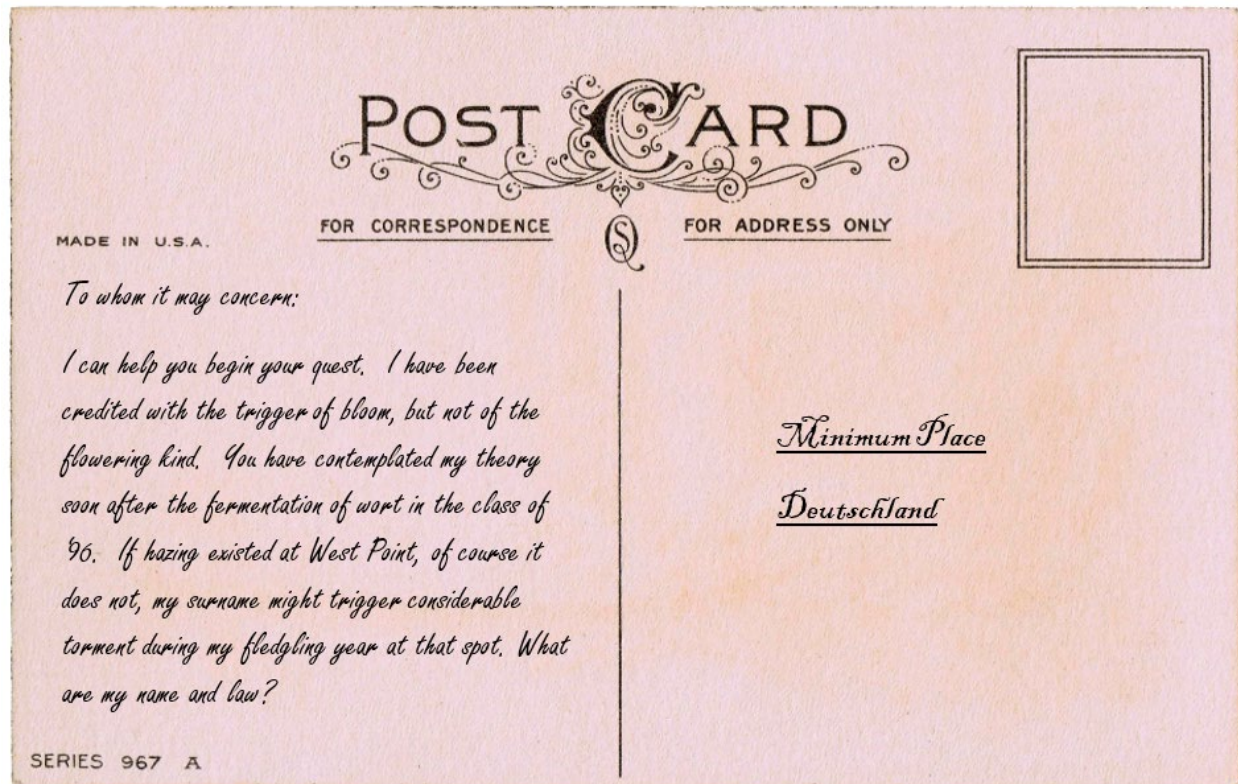 POST CARD
FOR CORRESPONDENCE
FOR ADDRESS ONLY
MADE IN U.S.A.
To whom it may concern:
I can help you begin your quest. I have been
credited with the trigger of bloom, but not of the
flowering kind. You have contemplated my theory
soon after the fermentation of wort in the class of
'96. If hazing existed at West Point, of course it
does not, my surname might trigger considerable
torment during my fledgling year at that spot. What
are my name and law?
Minimum Place
Deutschland
SERIES 967 A